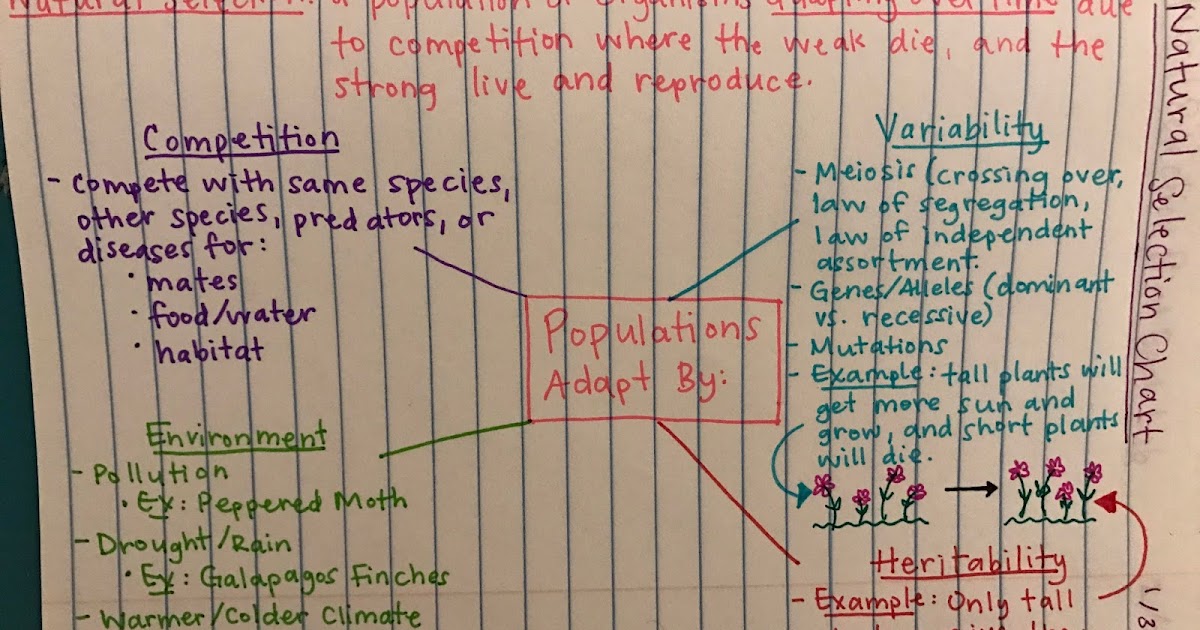 Natural Selection: a population of organisms adapting over time due
to competition where the weak die, and the
strong live and reproduce.
Natural Selection Chart
Competition
- Compete with same species,
other species, predators, or
diseases for:
· mates
· food/water
· habitat
Variability
- Meiosis (crossing over,
law of segregation,
law of independent
assortment.
- Genes/Alleles (dominant
vs. recessive)
- Mutations
- Example: tall plants will
get more sun and
grow, and short plants
will die.
Populations
Adapt By:
Environment
- Pollution
· Ex: Peppered Moth
- Drought/Rain
· Ex: Galapagos Finches
- Warmer/Colder Climate
Heritability
- Example: Only tall
1/3